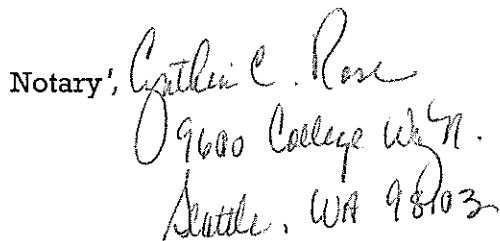 Notary', Cynthia C. Rose
9600 College Wy N.
Seattle, WA 98103